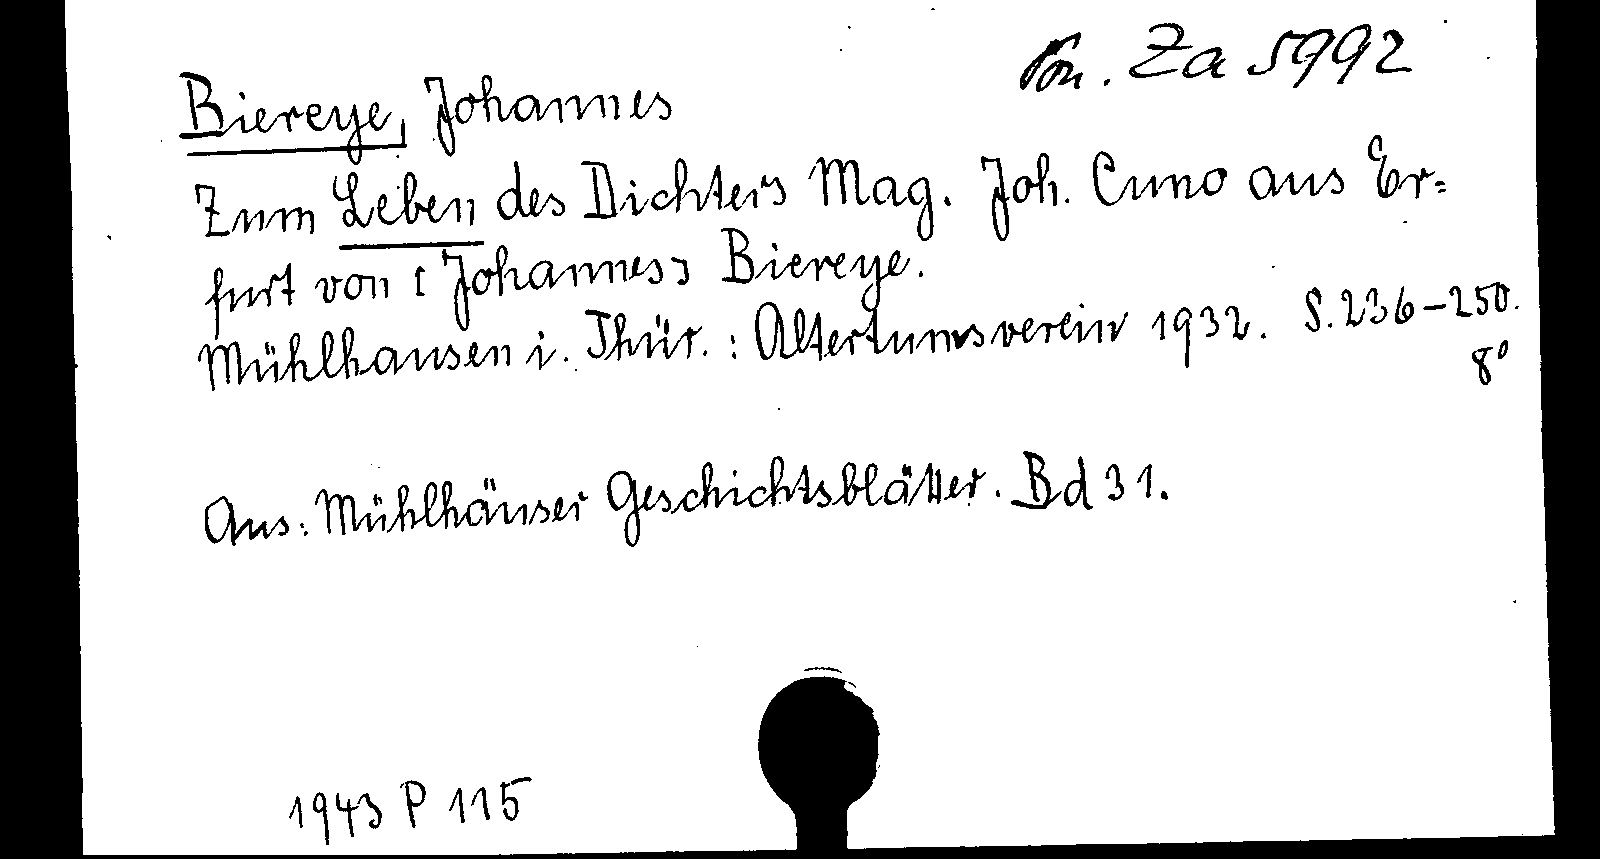 Pon. Za 5992
Biereye, Johannes
Zum Leben des Dichters Mag. Joh. Cuno aus Er=
furt von [Johannes] Biereye.
Mühlhausen i. Thür. : Altertumsverein 1932. S. 236-250.
8°
Aus: Mühlhäuser Geschichtsblätter. Bd 31.
1943 P 115